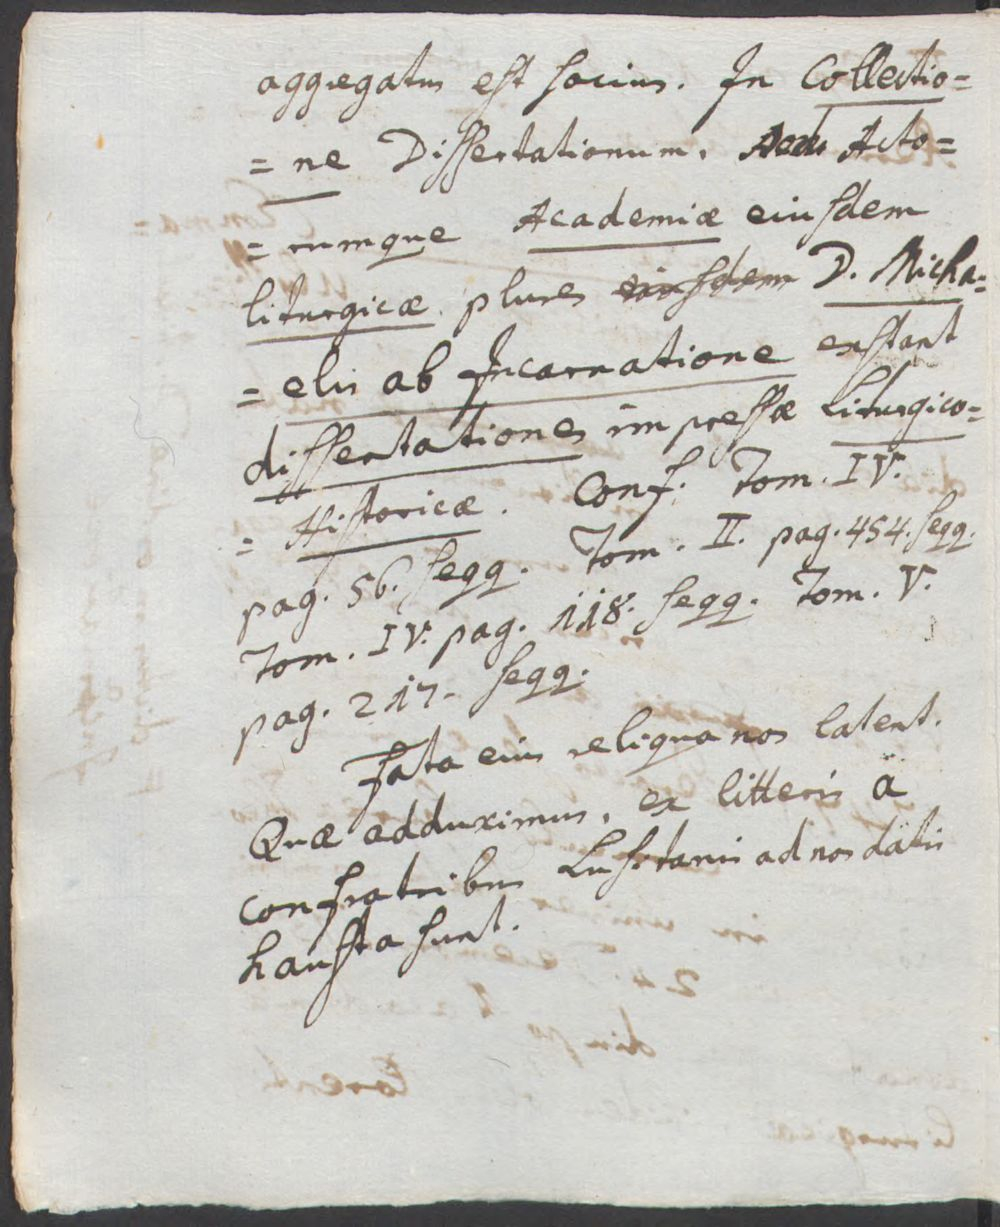 aggregatus est socius. In Collectio=
=ne Dissertationum, Acto=
=rumque Academiæ eiusdem
liturgicæ plures eiusdem D. Micha=
=elis ab Incarnatione exstant
dissertationes impressæ Liturgico=
=Historicæ. Conf. Tom. IV.
pag. 56. seqq. Tom. II. pag. 454. seqq.
Tom. IV. pag. 118. seqq. Tom. V.
pag. 217. seqq.
Fata eius reliqua nos latent.
Quæ adduximus, ex litteris a
confratribus Lusitanis ad nos datis
hausta sunt.